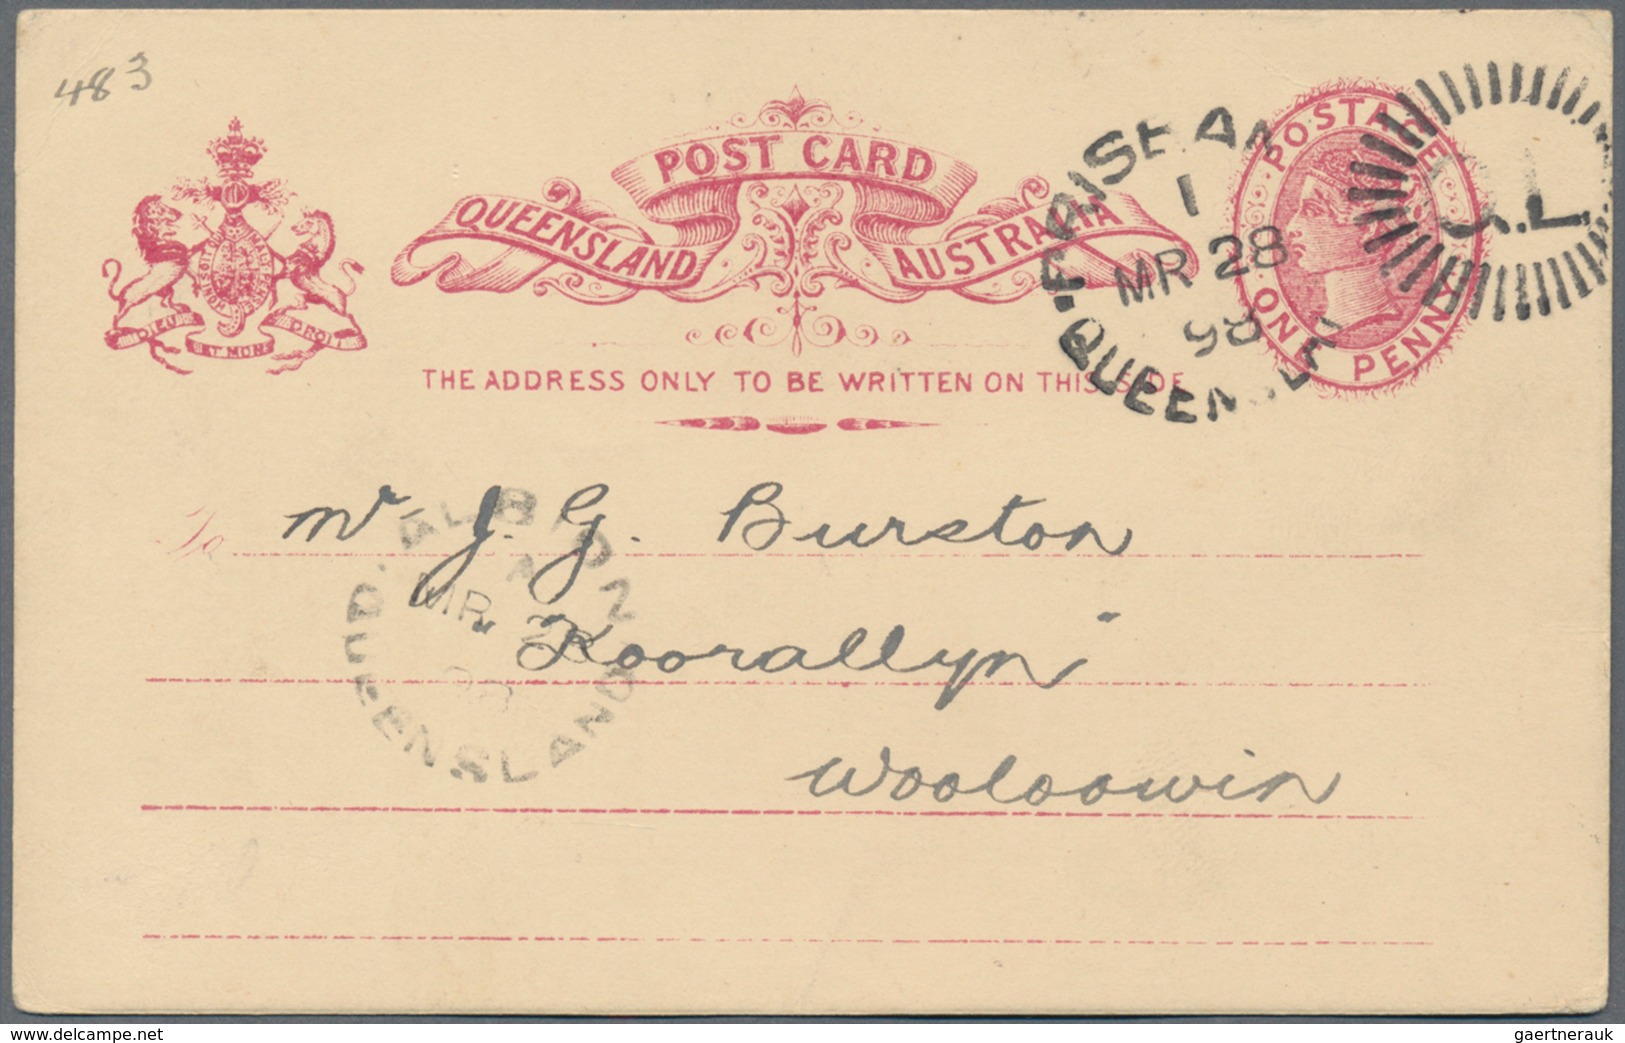 483
POST CARD
QUEENSLAND AUSTRALIA
POSTAGE
ONE PENNY
DIEU ET MON DROIT
BRISBAN
1
MR 28
98
QUEENSL
Q.L.
THE ADDRESS ONLY TO BE WRITTEN ON THIS SIDE
To Mr J. G. Burston
"Koorallyn"
Wooloowin
ALBION
A
MR 28
98
QUEENSLAND
delcampe.net
gaertnerauk